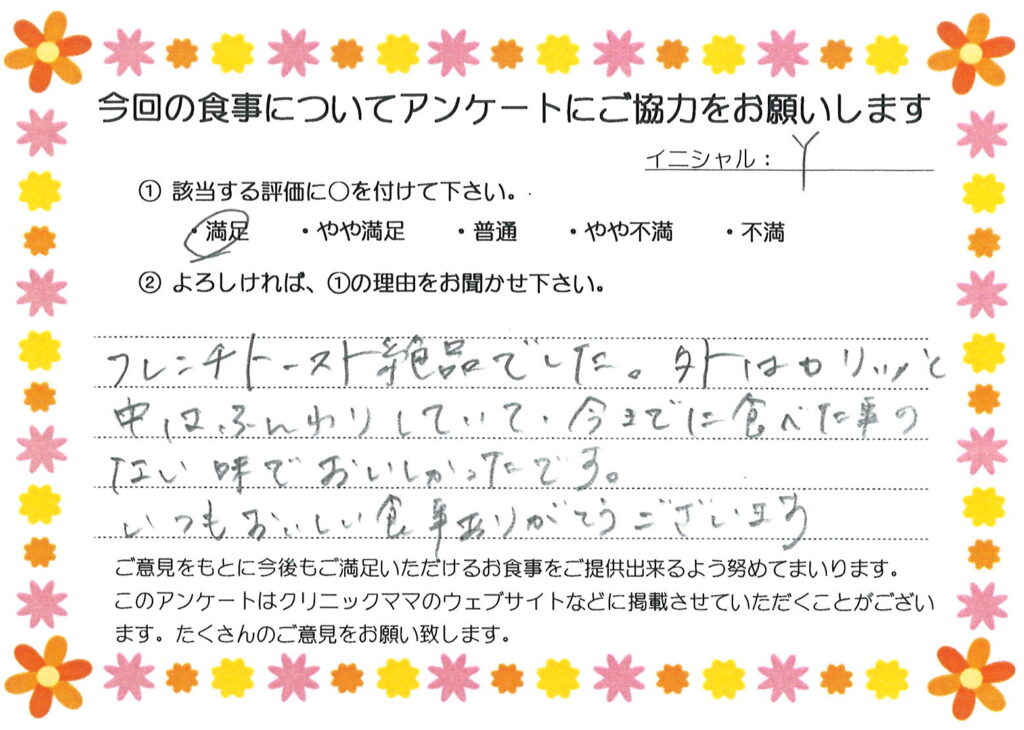 今回の食事についてアンケートにご協力をお願いします
イニシャル： Y
① 該当する評価に〇を付けて下さい。
・満足 ・やや満足 ・普通 ・やや不満 ・不満
② よろしければ、①の理由をお聞かせ下さい。
フレンチトースト絶品でした。外はカリッと
中はふんわりしていて、今までに食べた事の
ない味でおいしかったです。
いつもおいしい食事ありがとうございます
ご意見をもとに今後もご満足いただけるお食事をご提供出来るよう努めてまいります。
このアンケートはクリニックママのウェブサイトなどに掲載させていただくことがござい
ます。たくさんのご意見をお願い致します。